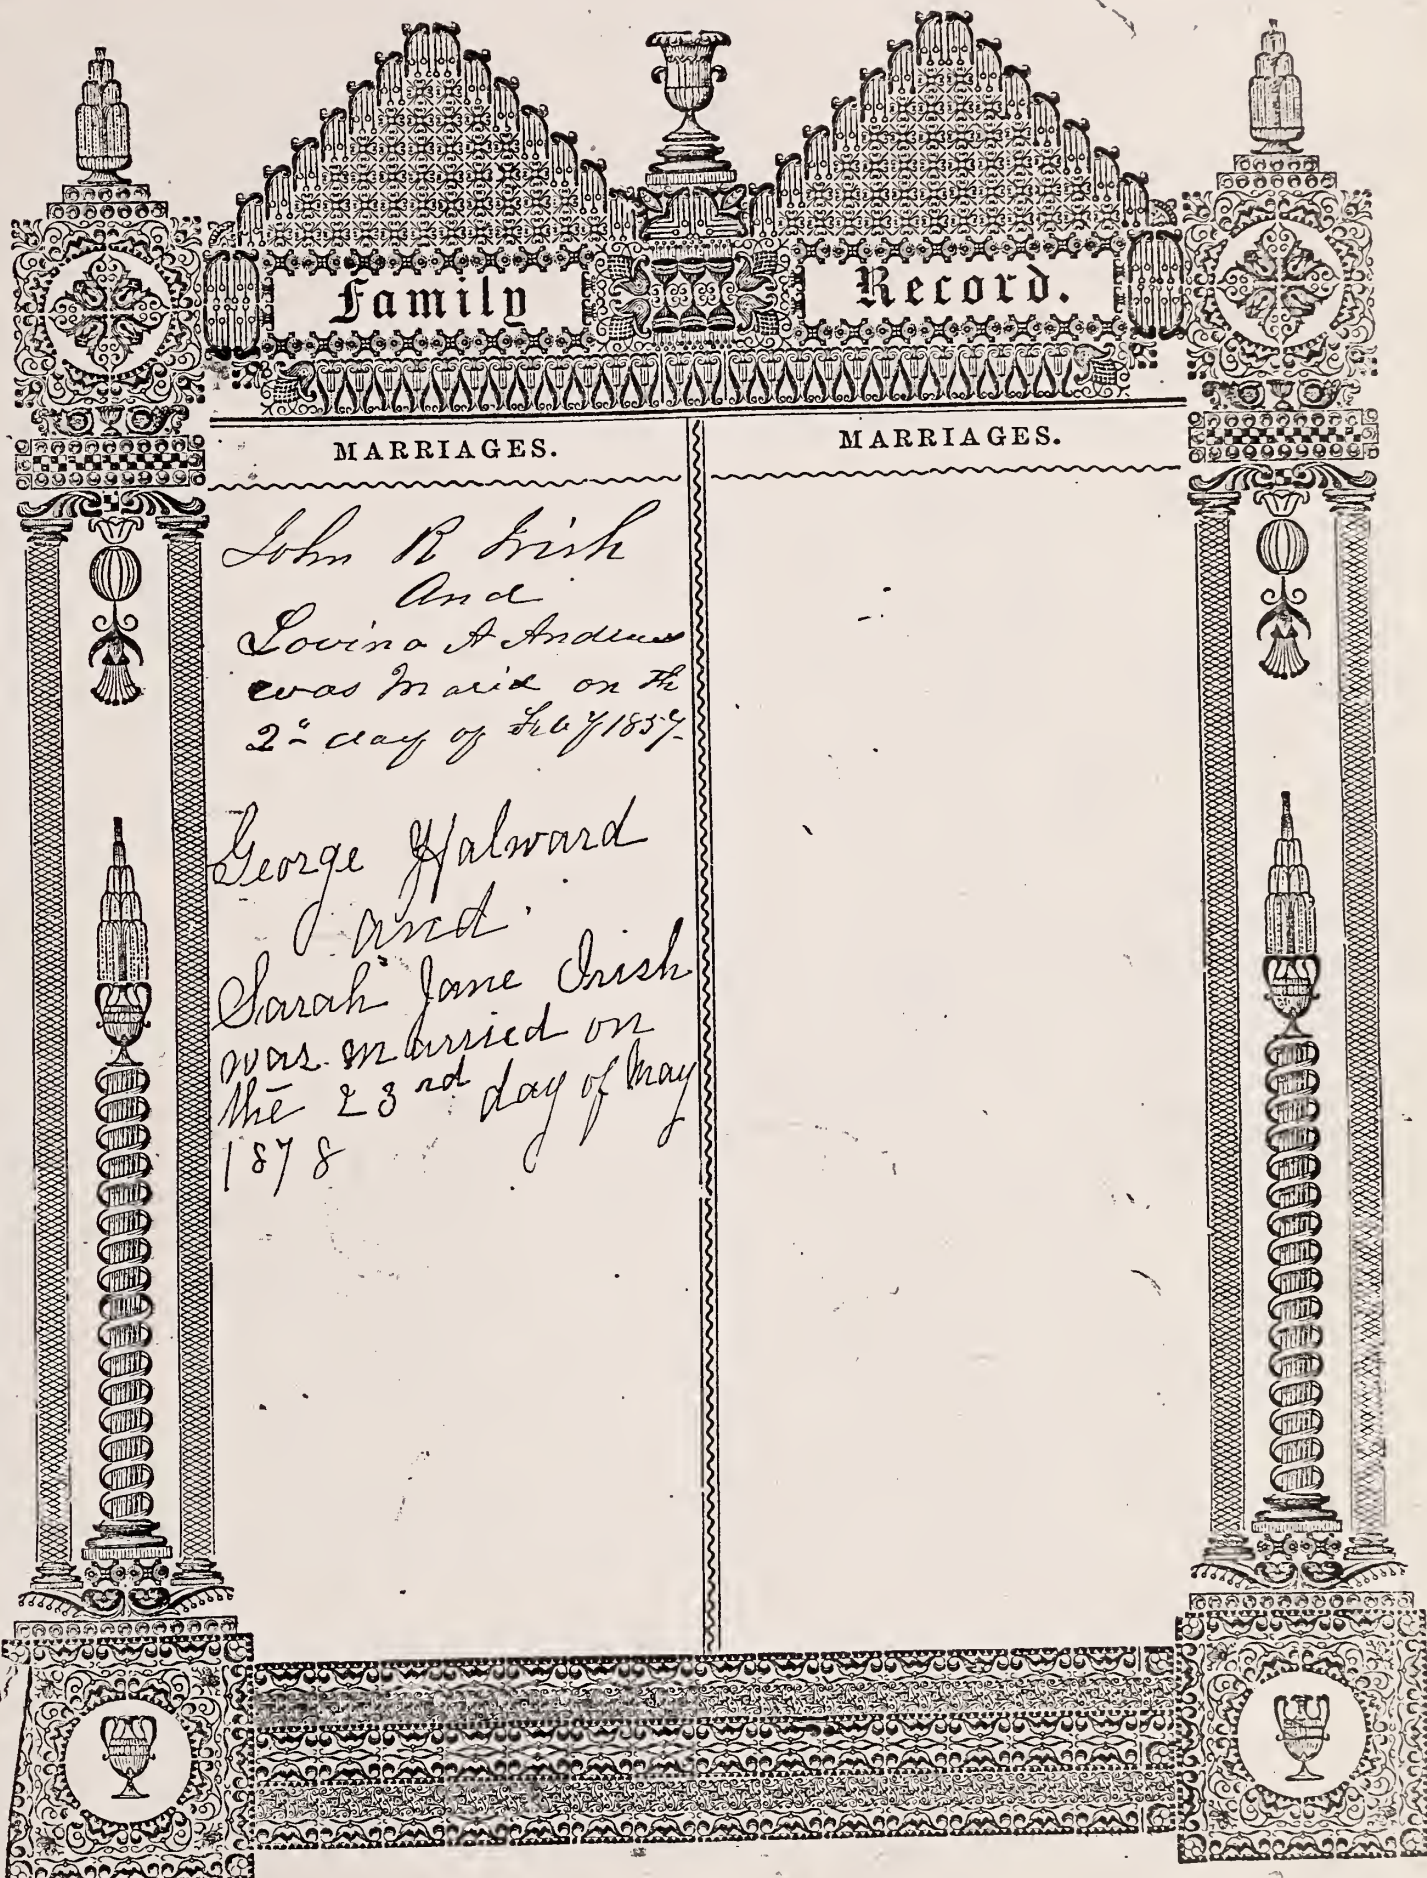 Family Record.
MARRIAGES.
John R Irish
And
Lovina A Andrews
was Marid on th
2d day of Feby 1857
George Halward
and
Sarah Jane Irish
was married on
the 23rd day of May
1878
MARRIAGES.